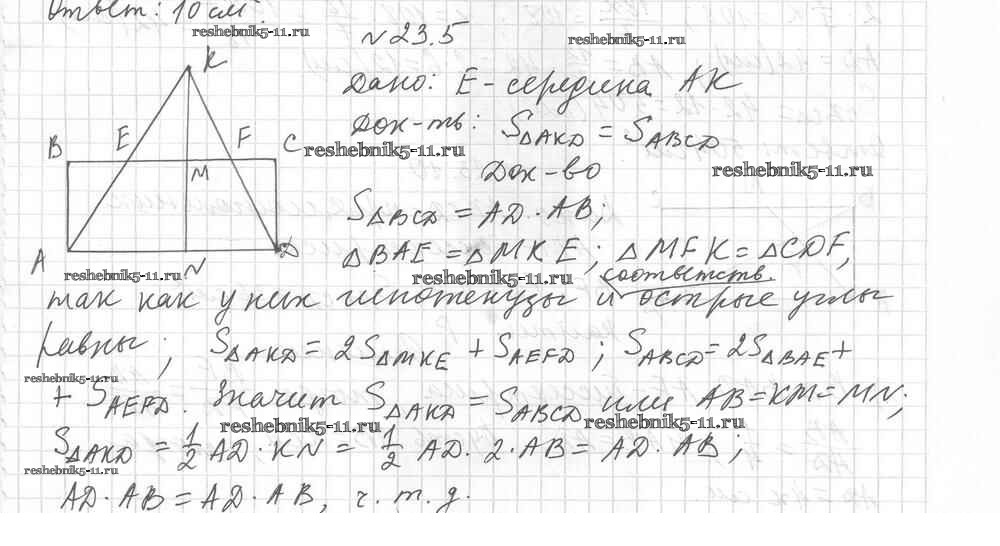 Ответ: 10 см
reshebnik5-11.ru
N 23.5
reshebnik5-11.ru
K
Дано: E - середина AK
B E F C
Док-ть: S△AKD = SABCD
reshebnik5-11.ru
M
Док-во
reshebnik5-11.ru
S△BCD = AD · AB;
A N D
△BAE = △MKE; △MFK = △CDF,
reshebnik5-11.ru
reshebnik5-11.ru
соответств.
так как у них гипотенузы и острые углы
равны; S△AKD = 2S△MKE + SAEFD; SABCD = 2S△BAE +
reshebnik5-11.ru
+ SAEFD. Значит S△AKD = SABCD или AB = KM = MN;
reshebnik5-11.ru
reshebnik5-11.ru
S△AKD = 1/2 AD · KN = 1/2 AD · 2 · AB = AD · AB;
reshebnik5-11.ru
AD · AB = AD · AB, ч. т. д.